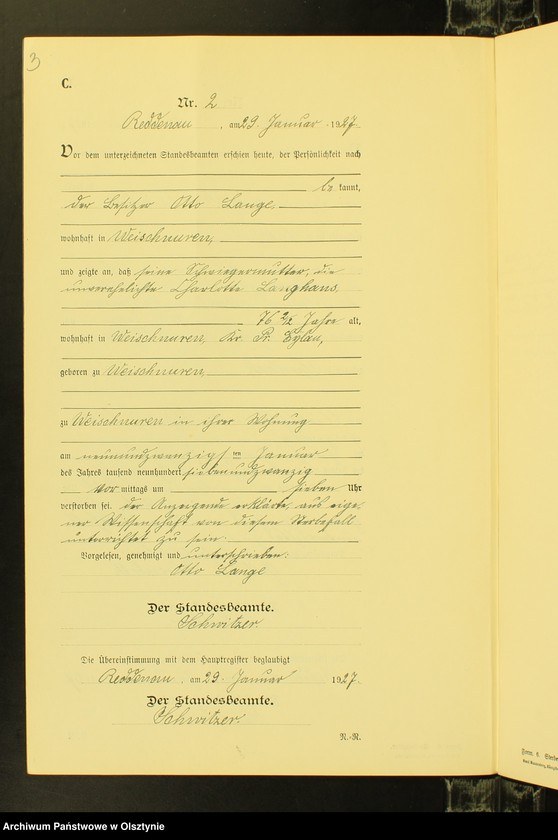 3
C.
Nr. 2
Reddenau, am 29. Januar 1927.
Vor dem unterzeichneten Standesbeamten erschien heute, der Persönlichkeit nach
be kannt,
der Besitzer Otto Lange,
wohnhaft in Weischnuren,
und zeigte an, daß seine Schwiegermutter, die
unverehelichte Charlotte Langhans,
76 2/12 Jahre alt,
wohnhaft in Weischnuren, Kr. Pr. Eylau,
geboren zu Weischnuren,
zu Weischnuren in ihrer Wohnung
am neunundzwanzigsten Januar
des Jahres tausend neunhundert siebenundzwanzig
Vor mittags um sieben Uhr
verstorben sei. Der Anzeigende erklärte, aus eige-
ner Wissenschaft von diesem Sterbefall
unterrichtet zu sein.
Vorgelesen, genehmigt und unterschrieben:
Otto Lange
Der Standesbeamte.
Schwitzer.
Die Übereinstimmung mit dem Hauptregister beglaubigt
Reddenau, am 29. Januar 1927.
Der Standesbeamte.
Schwitzer.
N.-R.
Form. C
Archiwum Państwowe w Olsztynie